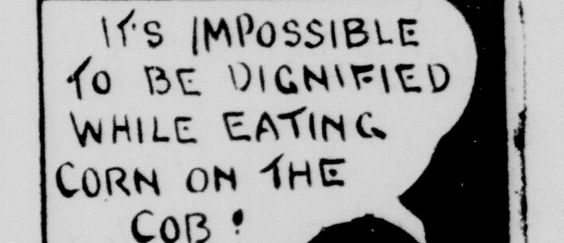 IT'S IMPOSSIBLE
TO BE DIGNIFIED
WHILE EATING
CORN ON THE
COB!